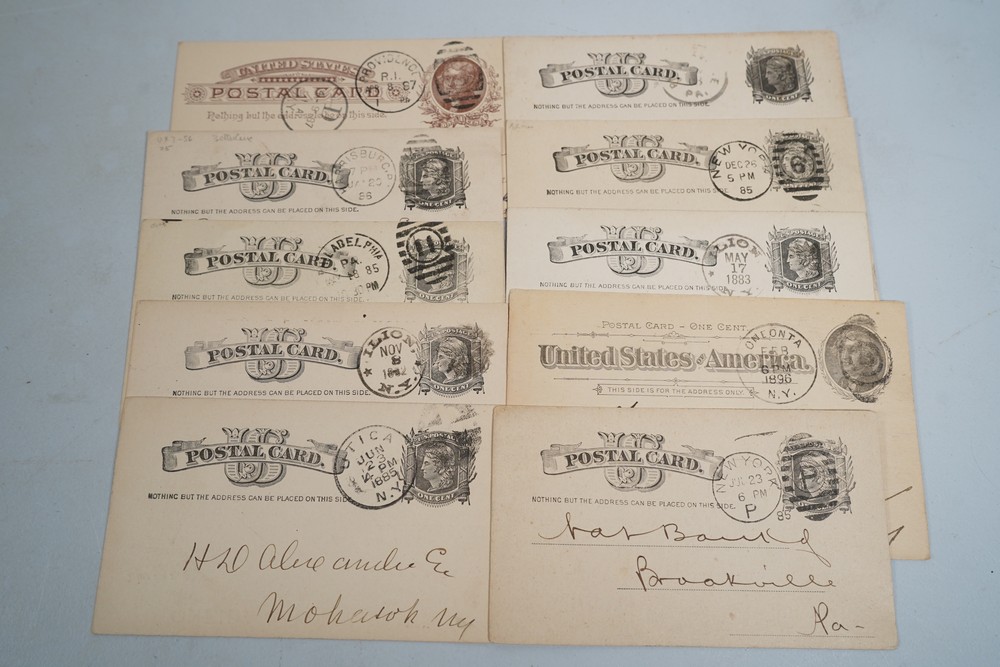 UNITED STATES
POSTAL CARD
Nothing but the address on this side.
PROVIDENCE
R.I.
US
POSTAL CARD.
NOTHING BUT THE ADDRESS CAN BE PLACED ON THIS SIDE.
ONE CENT
PA.
US
POSTAL CARD.
NOTHING BUT THE ADDRESS CAN BE PLACED ON THIS SIDE.
ONE CENT
US
POSTAL CARD.
NOTHING BUT THE ADDRESS CAN BE PLACED ON THIS SIDE.
NEW YORK
DEC 26
5 PM
85
6
ONE CENT
US
POSTAL CARD.
NOTHING BUT THE ADDRESS CAN BE PLACED ON THIS SIDE.
PHILADELPHIA
PA.
85
PM
11
ONE CENT
US
POSTAL CARD.
NOTHING BUT THE ADDRESS CAN BE PLACED ON THIS SIDE.
ILION
MAY
17
1883
ONE CENT
US
POSTAL CARD.
NOTHING BUT THE ADDRESS CAN BE PLACED ON THIS SIDE.
ILION N.Y.
NOV
ONE CENT
POSTAL CARD – ONE CENT.
United States of America.
THIS SIDE IS FOR THE ADDRESS ONLY.
ONEONTA
FEB
6 PM
1896
N.Y.
US
POSTAL CARD.
NOTHING BUT THE ADDRESS CAN BE PLACED ON THIS SIDE.
UTICA
JUN
23
PM
1885
N.Y.
ONE CENT
H D Alexander Esq
Mohawk NY
US
POSTAL CARD.
NOTHING BUT THE ADDRESS CAN BE PLACED ON THIS SIDE.
NEW YORK
23
6 PM
P
85
Nat Bank of
Brookville
Pa-